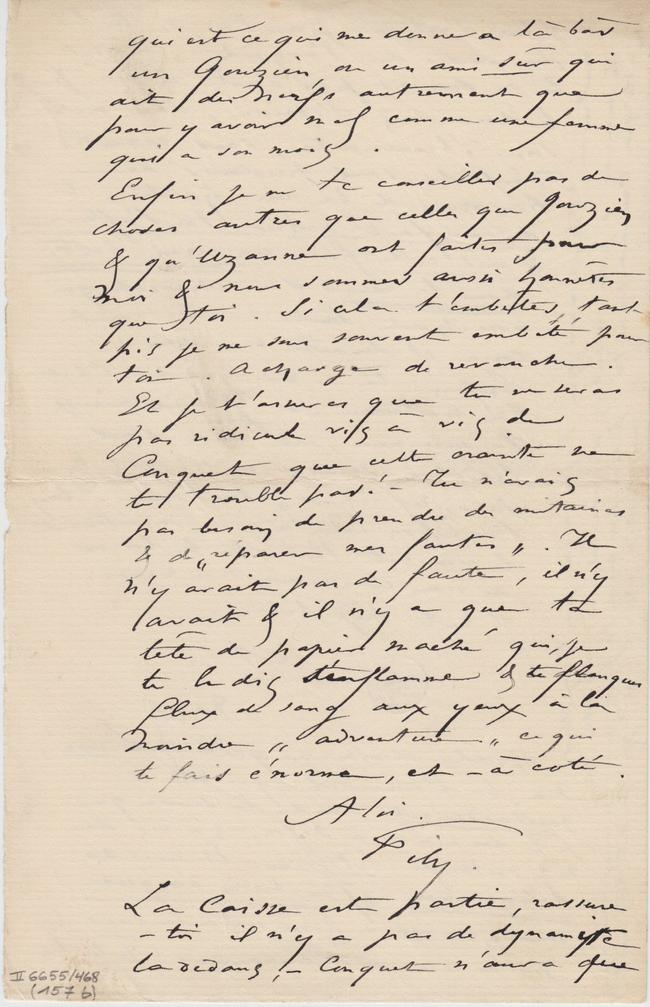 qui est ce qui me donnera là bas
un Gouzien, ou un ami sûr qui
ait des nerfs autrement que
pour y avoir mal comme une femme
qui a son mois.
Enfin je ne te conseiller pas de
choses autres que celles que Gouzien
& qu'Uzanne ont faites pour
moi & nous sommes aussi honnêtes
que toi. Si cela t'embêtes, tant
pis je me suis souvent embêté pour
toi. A charge de revanche.
Et je t'assures que tu ne seras
pas ridicule vis à vis de
Conquet que cette crainte ne
te trouble pas! - Tu n'avais
pas besoin de prendre des mitaines
& de „réparer mes fautes". Il
n'y avait pas de faute, il n'y
avait & il n'y a que ta
tête de papier maché qui, je
te le dis s'enflamme & te flanques
flux de sang aux yeux à la
moindre „adventure" ce qui
te fais énorme, et - à coté.
A toi.
Fély.
La Caisse est partie, rassure
-toi il n'y a pas de dynamite
là dedans, - Conquet n'aura que
II 6655/468
(157 b)